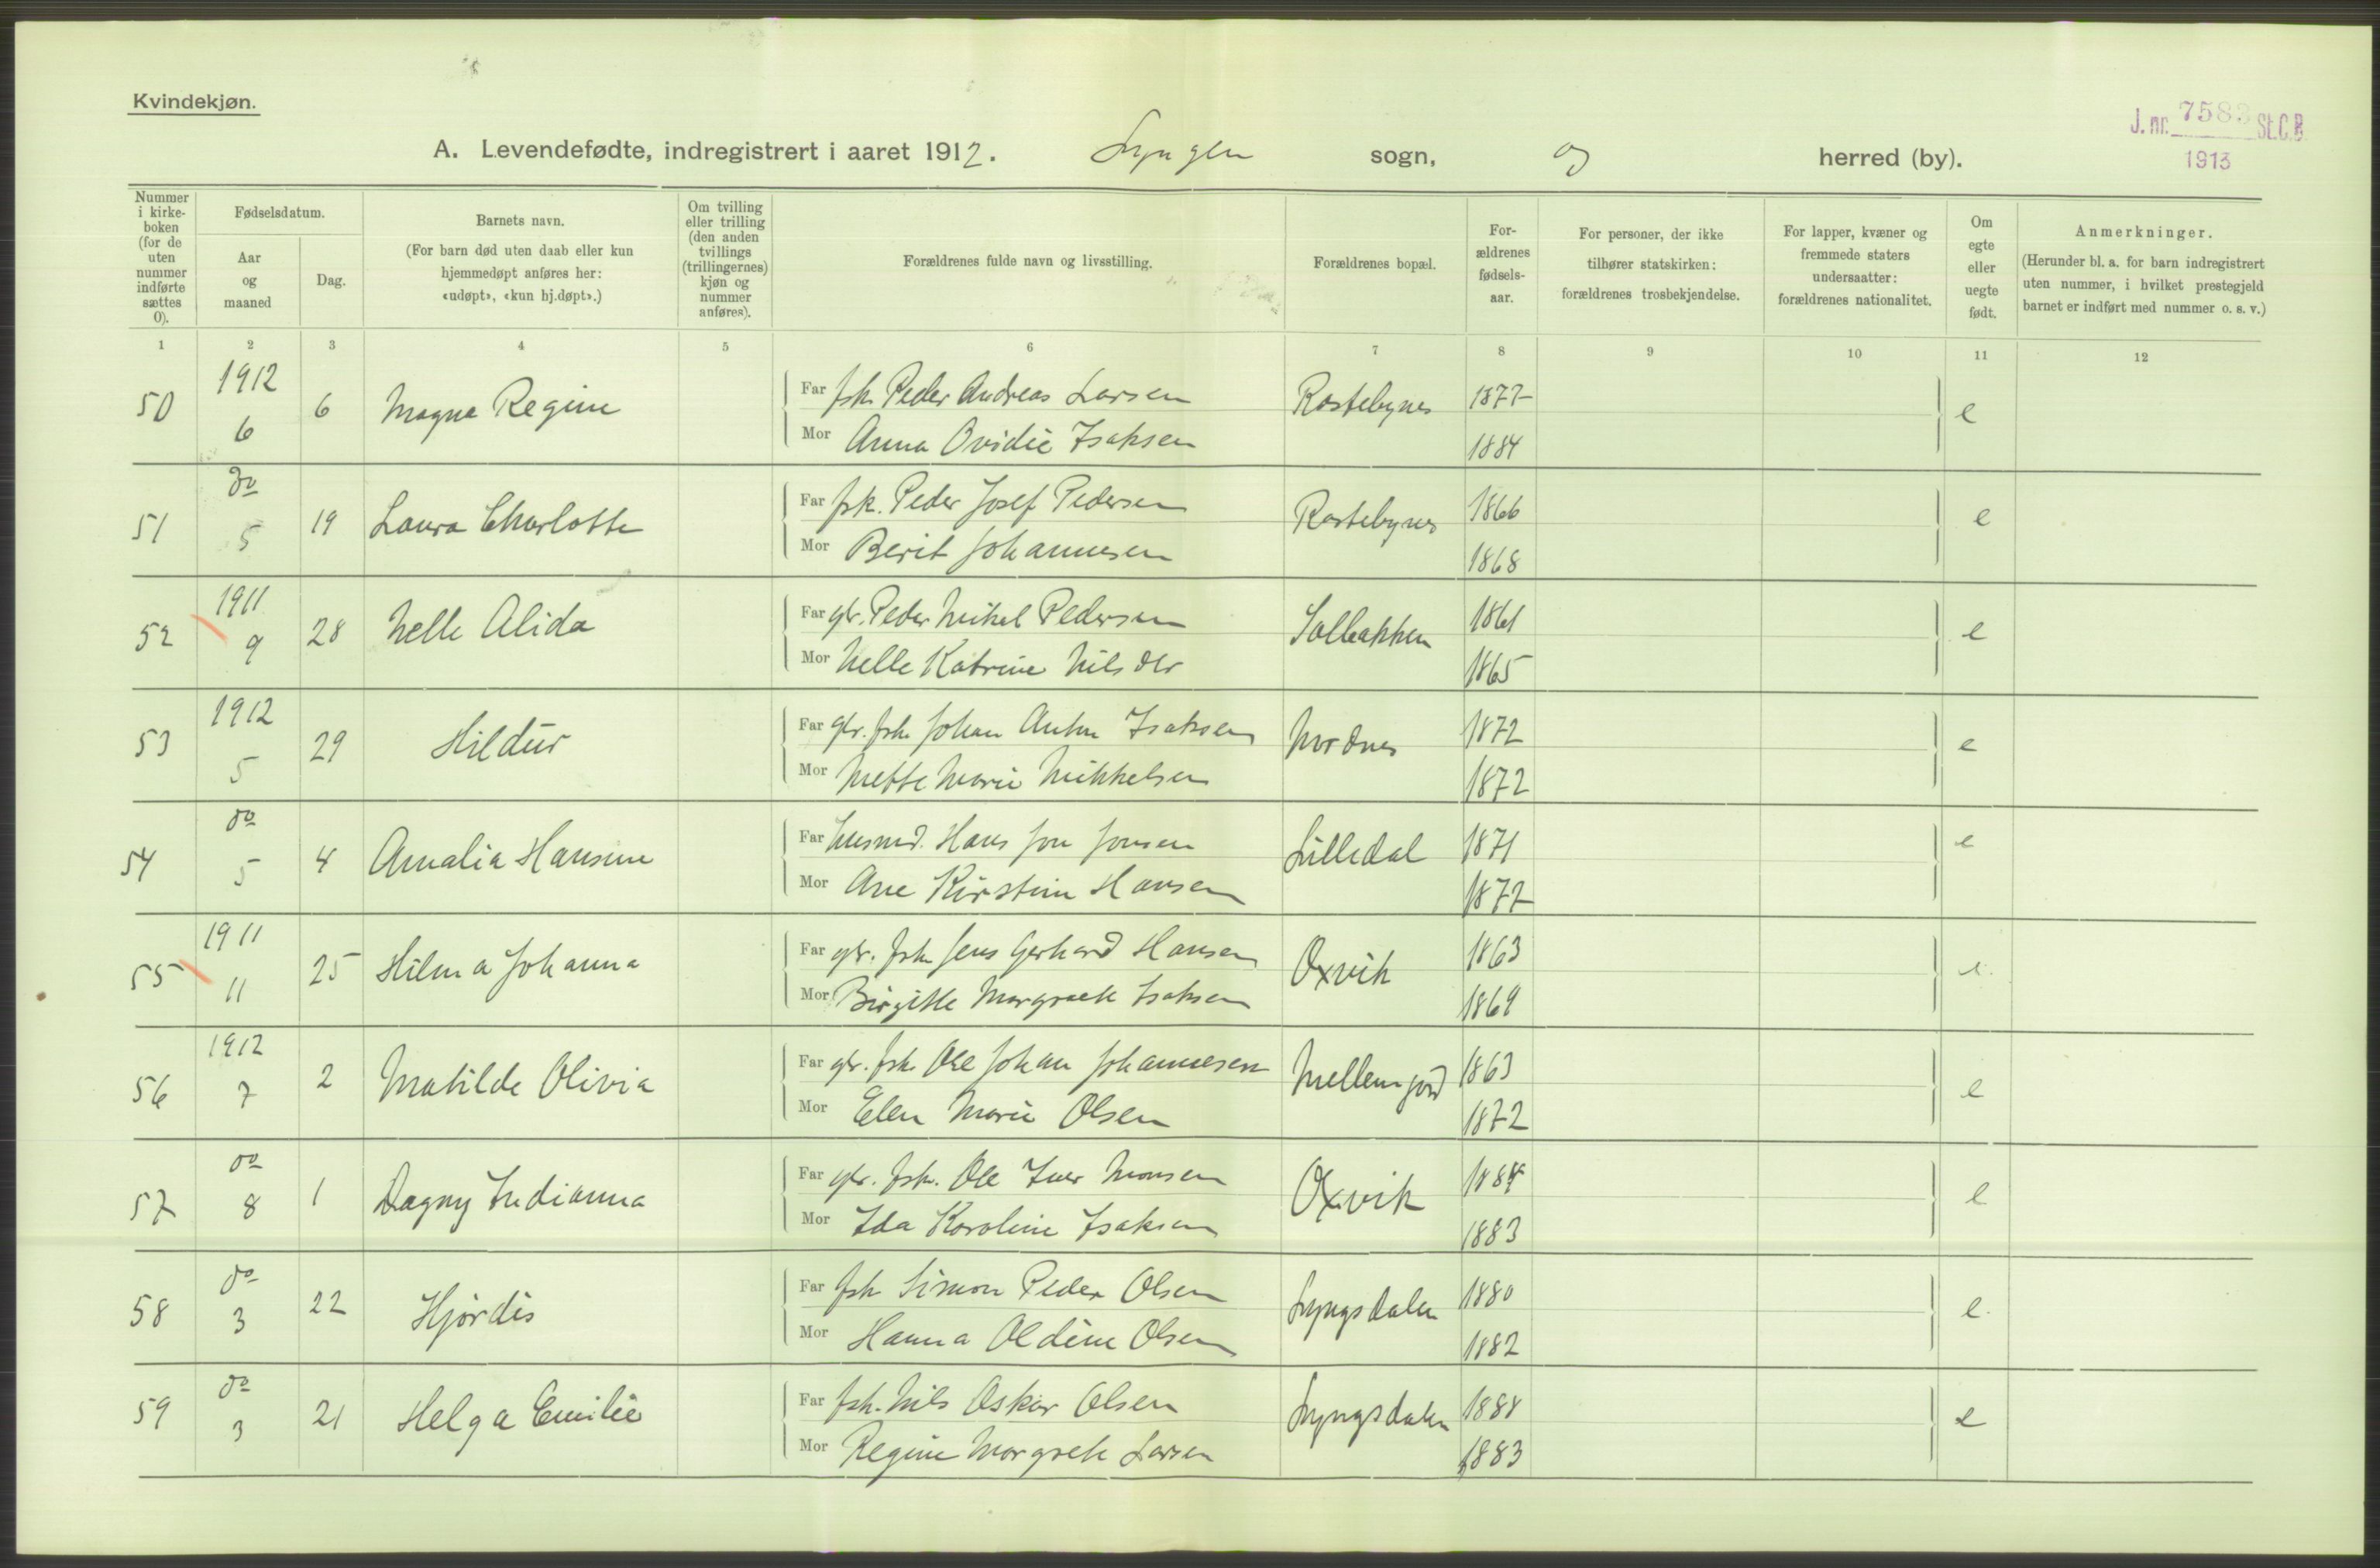 Kvindekjøn.
J. nr. 7583 St.C.B.
1913
A. Levendefødte, indregistrert i aaret 1912. Lyngen sogn, og herred (by).
Nummer i kirkeboken (for de uten nummer indførte sættes 0).
Fødselsdatum.
Aar og maaned
Dag.
Barnets navn.
(For barn død uten daab eller kun hjemmedøpt anføres her: «udøpt», «kun hj.døpt».)
Om tvilling eller trilling (den anden tvillings (trillingernes) kjøn og nummer anføres).
Forældrenes fulde navn og livsstilling.
Forældrenes bopæl.
Forældrenes fødselsaar.
For personer, der ikke tilhører statskirken: forældrenes trosbekjendelse.
For lapper, kvæner og fremmede staters undersaatter: forældrenes nationalitet.
Om egte eller uegte født.
Anmerkninger.
(Herunder bl. a. for barn indregistrert uten nummer, i hvilket prestegjeld barnet er indført med nummer o. s. v.)
1 2 3 4 5 6 7 8 9 10 11 12
50 1912 6 6 Magna Regine Far fsk. Peder Andreas Larsen Rastebynes 1877 e
Mor Anna Ovidie Isaksen 1884
51 do 5 19 Laura Charlotte Far fsk. Peder Josef Pedersen Rastebynes 1866 e
Mor Berit Johannesen 1868
52 1911 9 28 Nelle Alida Far gbr. Peder Mikal Pedersen Solbakken 1861 e
Mor Nelle Katrine Nilsdtr 1865
53 1912 5 29 Hildur Far gbr. fsk. Johan Anton Isaksen Nordnes 1872 e
Mor Mette Marie Mikkelsen 1872
54 do 5 4 Amalia Hansine Far husmd. Hans Jon Jonsen Lilledal 1871 e
Mor Ane Kirstine Hansen 1877
55 1911 11 25 Hilma Johanna Far gbr. fsk Jens Gerhard Hansen Oxvik 1863 e.
Mor Birgitte Margrete Isaksen 1869
56 1912 7 2 Matilde Olivia Far gbr. fsk Ole Johan Johannesen Mellemjord 1863 e
Mor Elen Marie Olsen 1872
57 do 8 1 Dagny Indianna Far gbr. fsk. Ole Iver Monsen Oxvik 1884 e
Mor Ida Karoline Isaksen 1883
58 do 3 22 Hjørdis Far fsk Simon Peder Olsen Lyngsdalen 1880 e.
Mor Hanna Oldine Olsen 1882
59 do 3 21 Helga Emilie Far fsk. Nils Oskar Olsen Lyngsdalen 1884 e
Mor Regine Margrete Larsen 1883